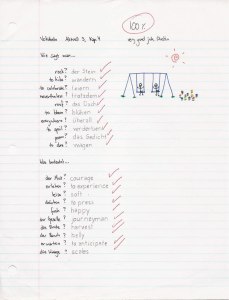 100%
very good job, Dustin
Vokabeln Aktuell 3, Kap. 4
Wie sagt man...
rock? der Stein
to hike? wandern
to celebrate? feiern
nevertheless? trotzdem
roof? das Dach
to bloom? blühen
everywhere? überall
to spoil? verderben
poem? das Gedicht
to dare? wagen
Was bedeutet...
der Mut? courage
erleben? to experience
leise? soft
drücken? to press
froh? happy
der Geselle? journeyman
die Ernte? harvest
der Bauch? belly
erwarten? to anticipate
die Waage? scales